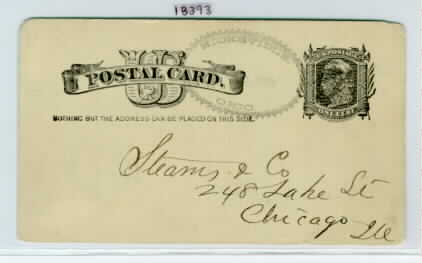 18393
US
POSTAL CARD.
NOTHING BUT THE ADDRESS CAN BE PLACED ON THIS SIDE.
OHIO
Stearns & Co
248 Lake St
Chicago Ill